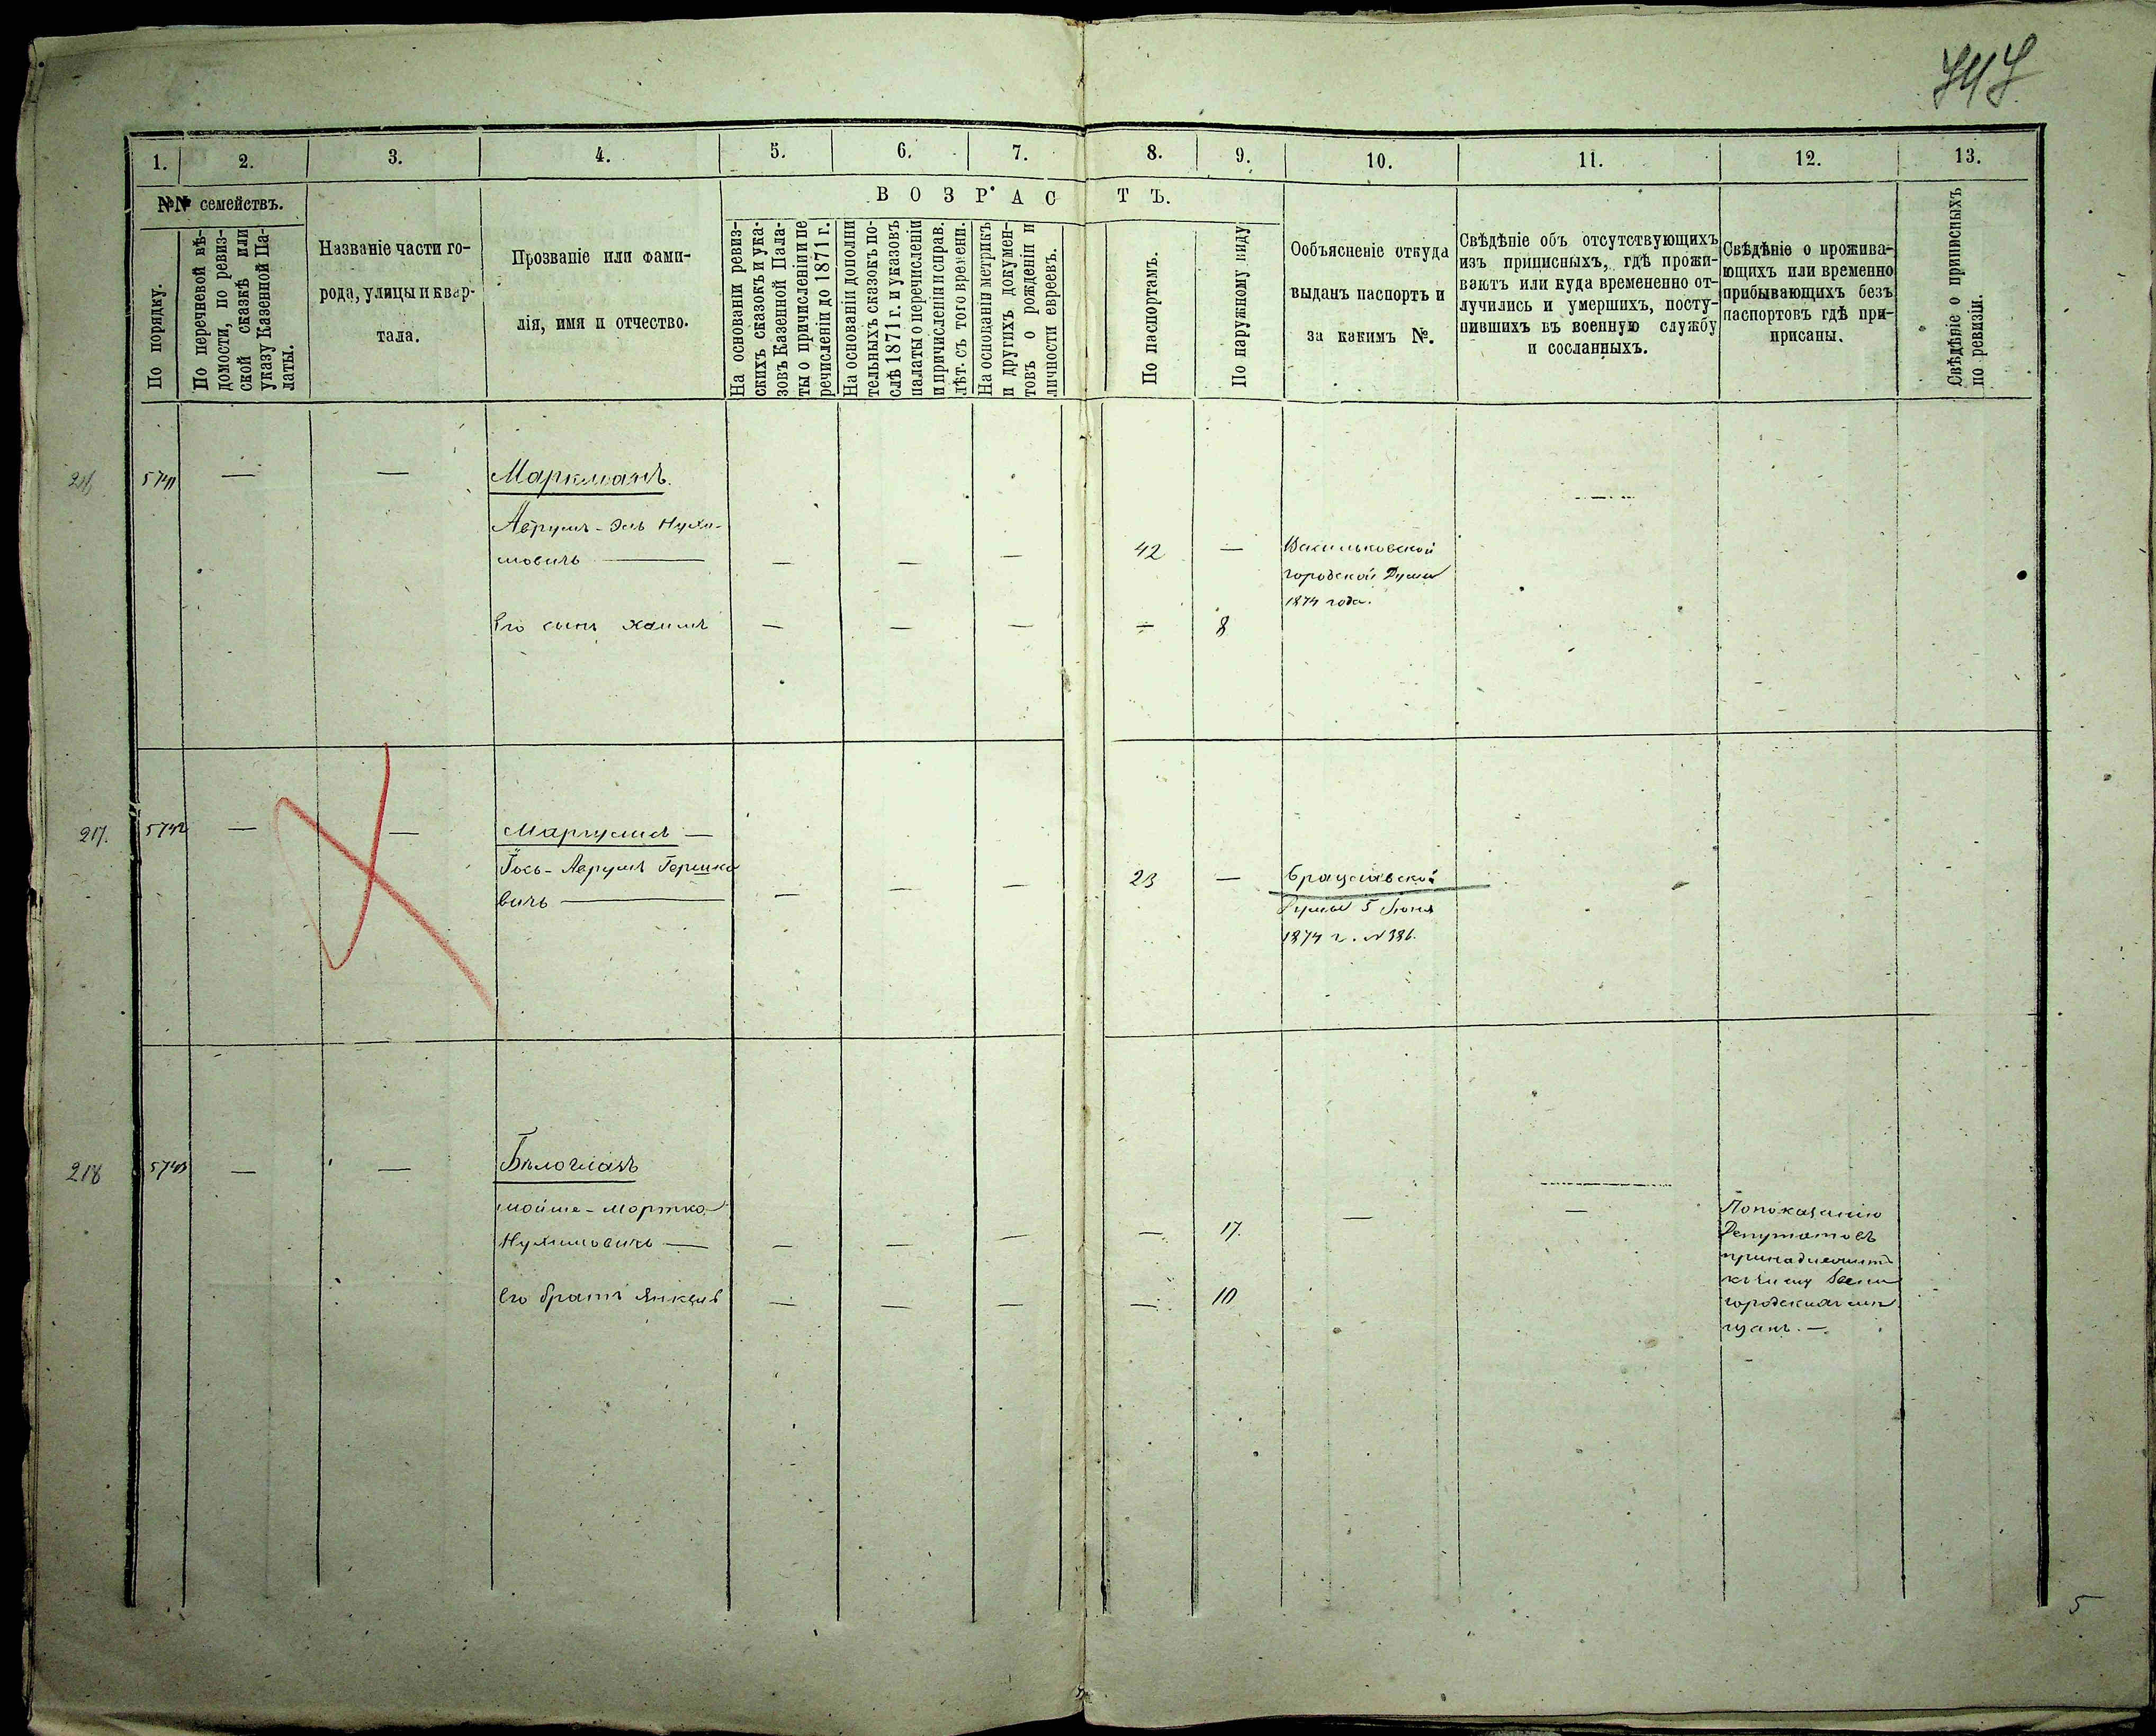 747
1. 2. 3. 4. 5. 6. 7. 8. 9. 10. 11. 12. 13.
№№ семействъ.
По порядку.
По перечневой вѣ-
домости, по ревиз-
ской сказкѣ или
указу Казенной Па-
латы.
Названіе части го-
рода, улицы и квар-
тала.
Прозваніе или фами-
лія, имя и отчество.
ВОЗРАСТЪ.
На основаніи ревиз-
скихъ сказокъ и ука-
зовъ Казенной Пала-
ты о причисленіи и пе
речисленіи до 1871 г.
На основаніи дополни
тельныхъ сказокъ по-
слѣ 1871 г. и указовъ
палаты о перечисленіи
и причисленіи и справ.
лѣт. съ того времени.
На основаніи метрикъ
и другихъ докумен-
товъ о рожденіи и
личности евреевъ.
По паспортамъ.
По наружному виду
Ообъясненіе откуда
выданъ паспортъ и
за какимъ №.
Свѣдѣніе объ отсутствующихъ
изъ приписныхъ, гдѣ прожи-
ваютъ или куда временено от-
лучились и умершихъ, посту-
пившихъ въ военную службу
и сосланныхъ.
Свѣдѣніе о прожива-
ющихъ или временно
прибывающихъ безъ
паспортовъ гдѣ при-
приcаны.
Свѣдѣніе о приписныхъ
по ревизіи.
216 5741 — — Маркманъ.
Аврумъ-Эль Нухи-
мовичъ — — — — 42 — Васильковской
городской Думы
1874 года.
Его сынъ Хаимъ — — — — 8
217. 5742 — — Маргулисъ —
Іось-Аврумъ Гершко
вичъ — — — — 23 — Брацлавской
Думы 5 Іюня
1874 г. № 386.
218 5743 — — Бѣлоцманъ
Мойше-Мортко
Нухимовичъ — — — — — 17. — —
Его братъ Янкель — — — — 10
По показанію
Депутатовъ
принадлежитъ
къ числу Звени
городскихъ мѣ
щанъ. —
5